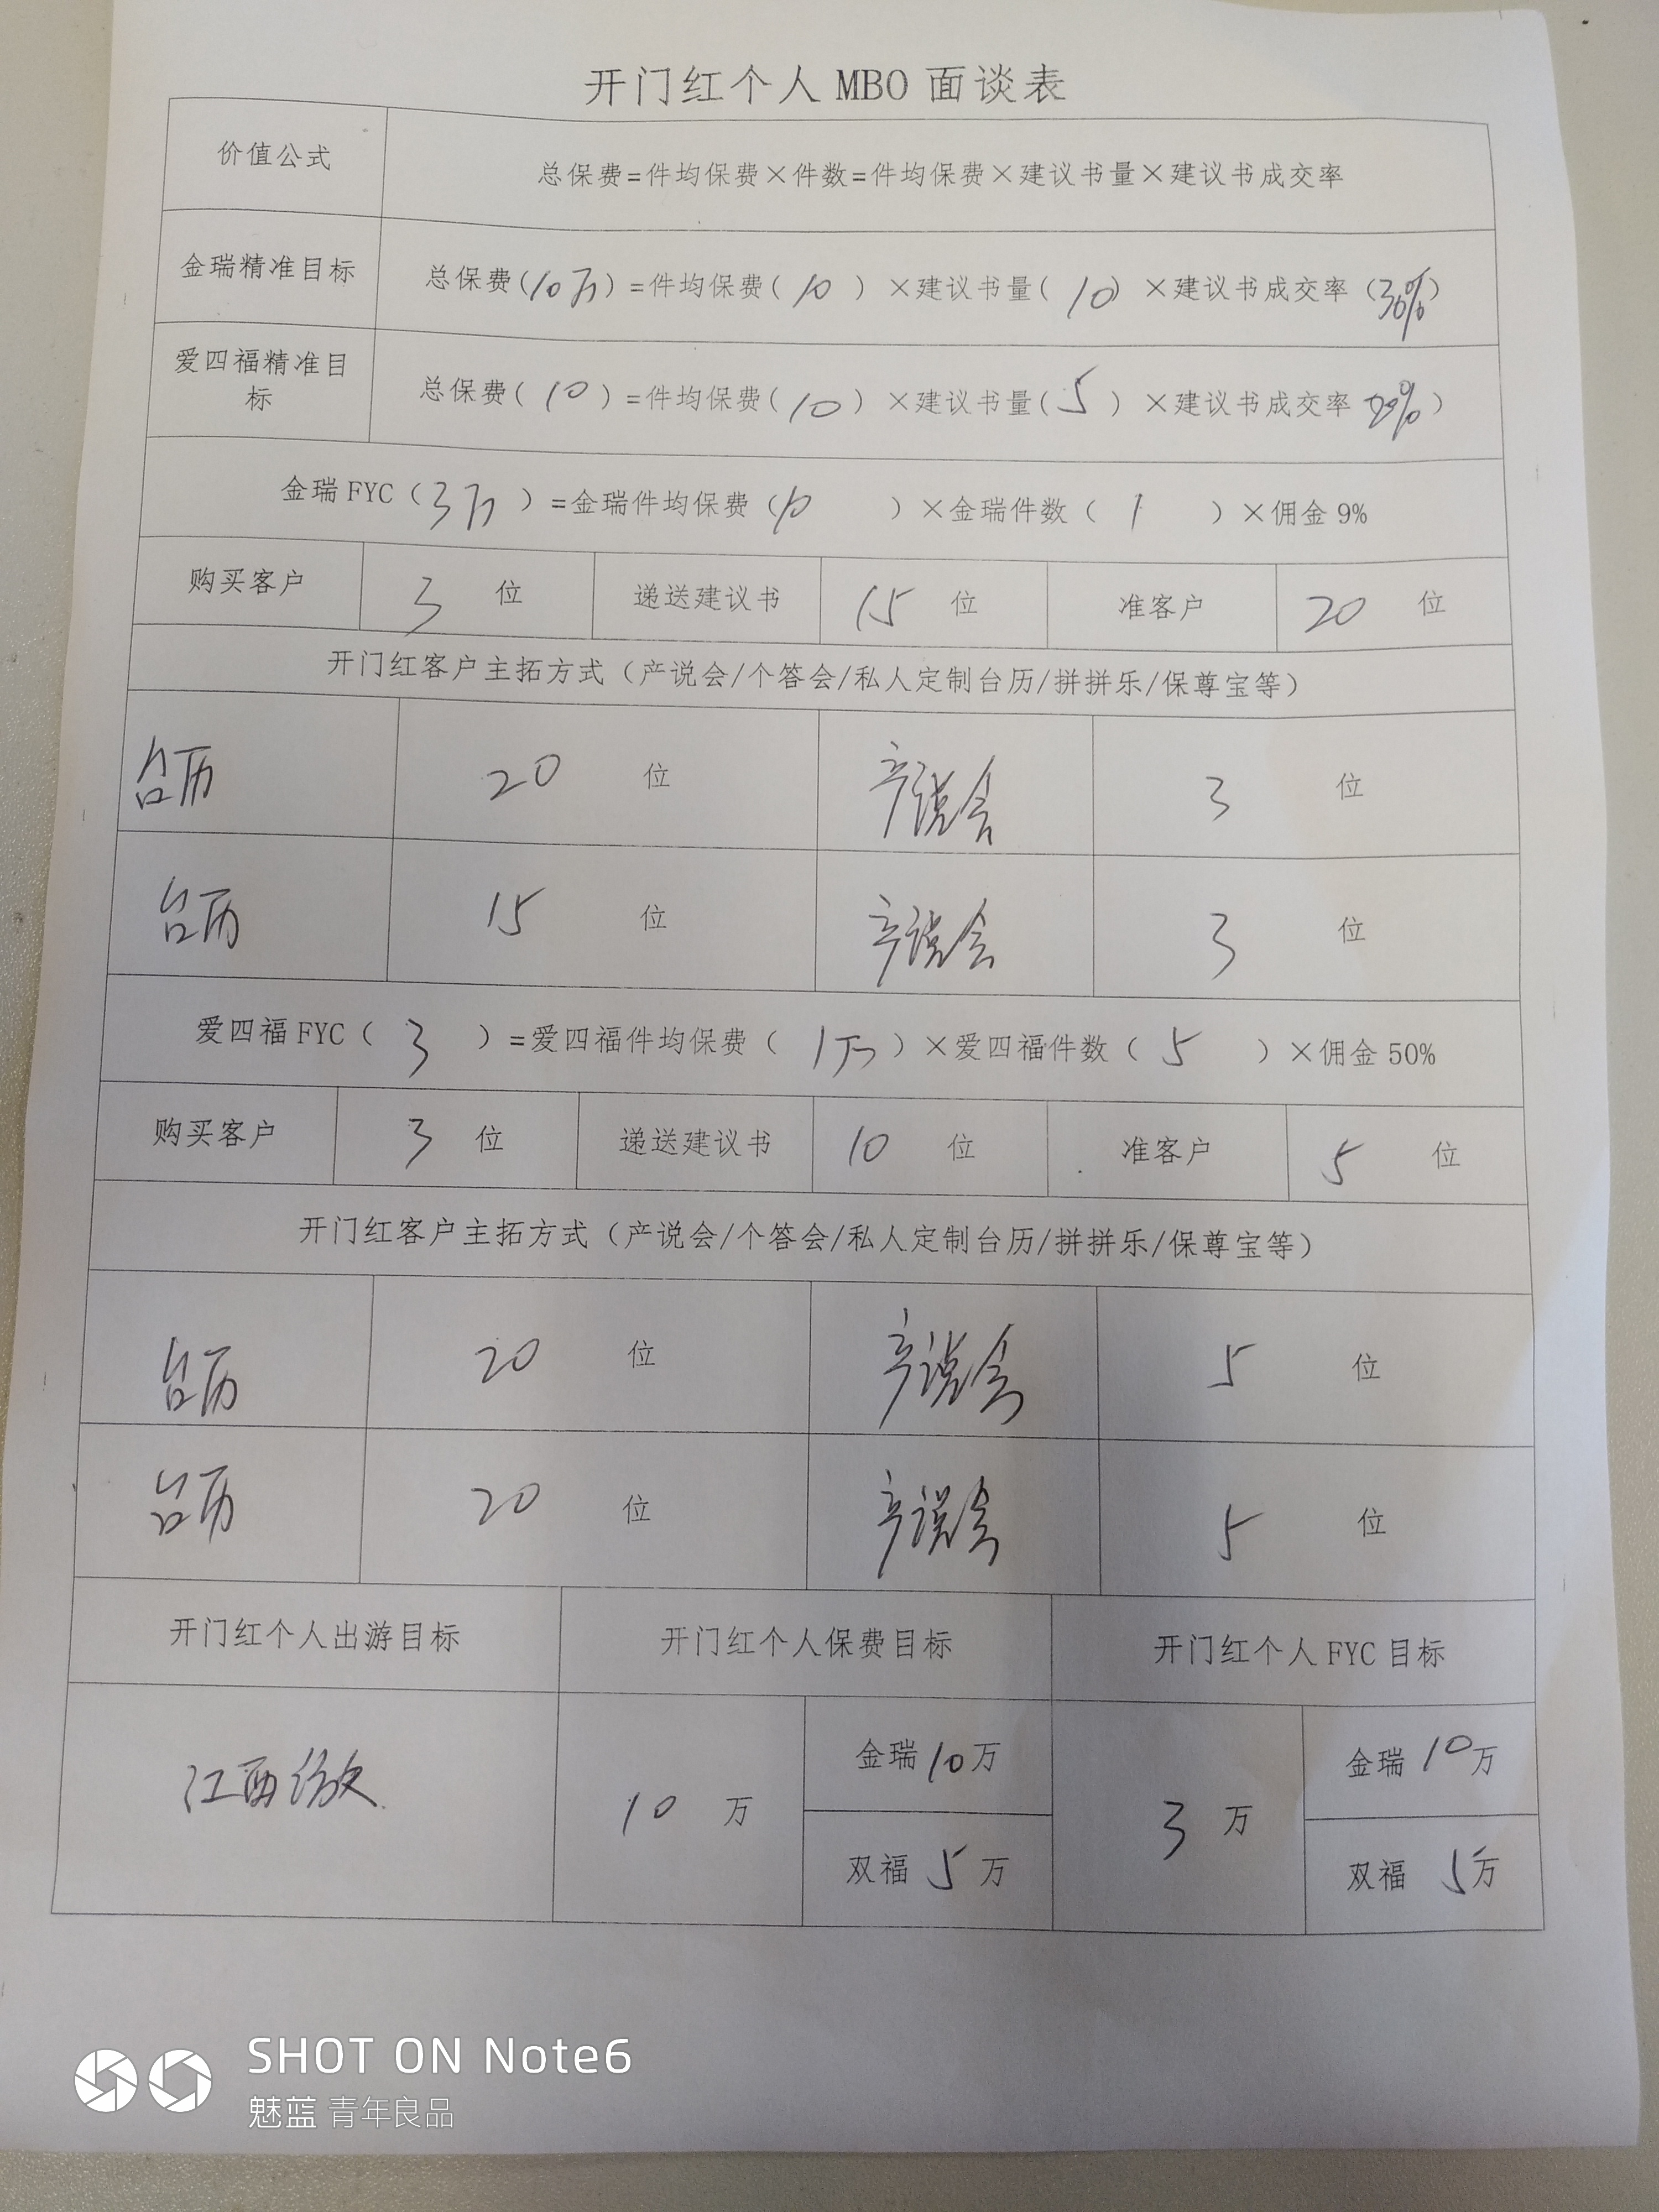 开门红个人 MBO 面谈表
价值公式 总保费=件均保费×件数=件均保费×建议书量×建议书成交率
金瑞精准目标 总保费(10万)=件均保费(10)×建议书量(10)×建议书成交率(30%)
爱四福精准目标 总保费(10)=件均保费(10)×建议书量(5)×建议书成交率 20%)
金瑞 FYC(3万)=金瑞件均保费(10)×金瑞件数(1)×佣金 9%
购买客户 3 位 递送建议书 15 位 准客户 20 位
开门红客户主拓方式(产说会/个答会/私人定制台历/拼拼乐/保尊宝等)
台历 20 位 产说会 3 位
台历 15 位 产说会 3 位
爱四福 FYC(3)=爱四福件均保费(1万)×爱四福件数(5)×佣金 50%
购买客户 3 位 递送建议书 10 位 准客户 5 位
开门红客户主拓方式(产说会/个答会/私人定制台历/拼拼乐/保尊宝等)
台历 20 位 产说会 5 位
台历 20 位 产说会 5 位
开门红个人出游目标 开门红个人保费目标 开门红个人 FYC 目标
江西 10 万 金瑞 10 万 3 万 金瑞 10 万
双福 5 万 双福 5 万
SHOT ON Note6
魅蓝 青年良品